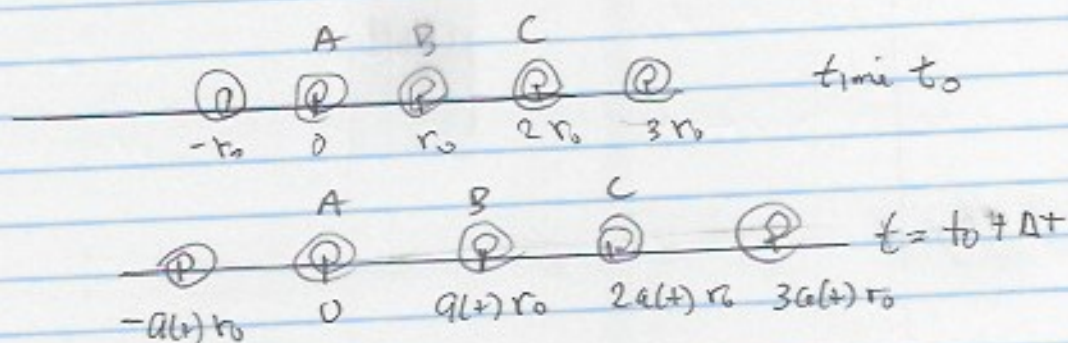 A B C
time t₀
-r₀ 0 r₀ 2r₀ 3r₀
A B C
t = t₀ + Δt
-a(t)r₀ 0 a(t)r₀ 2a(t)r₀ 3a(t)r₀